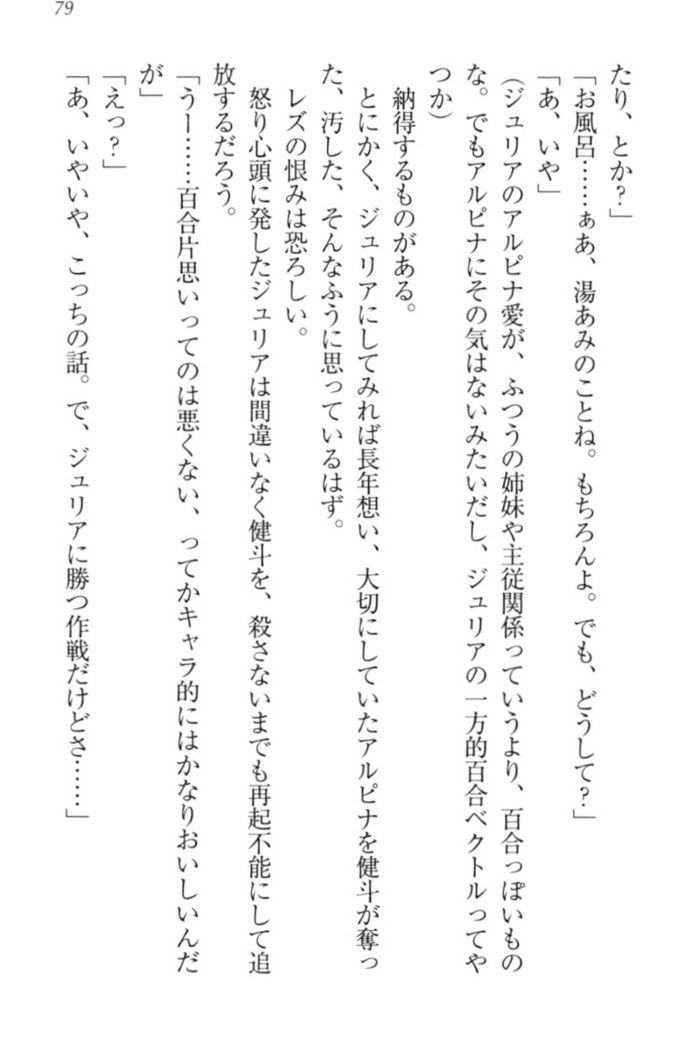 79
たり、とか?」
「お風呂……ぁあ、湯あみのことね。もちろんよ。でも、どうして?」
「あ、いや」
(ジュリアのアルピナ愛が、ふつうの姉妹や主従関係っていうより、百合っぽいもの
な。でもアルピナにその気はないみたいだし、ジュリアの一方的百合ベクトルってや
つか)
納得するものがある。
とにかく、ジュリアにしてみれば長年想い、大切にしていたアルピナを健斗が奪っ
た、汚した、そんなふうに思っているはず。
レズの恨みは恐ろしい。
怒り心頭に発したジュリアは間違いなく健斗を、殺さないまでも再起不能にして追
放するだろう。
「うー……百合片思いってのは悪くない、ってかキャラ的にはかなりおいしいんだ
が」
「えっ?」
「あ、いやいや、こっちの話。で、ジュリアに勝つ作戦だけどさ……」